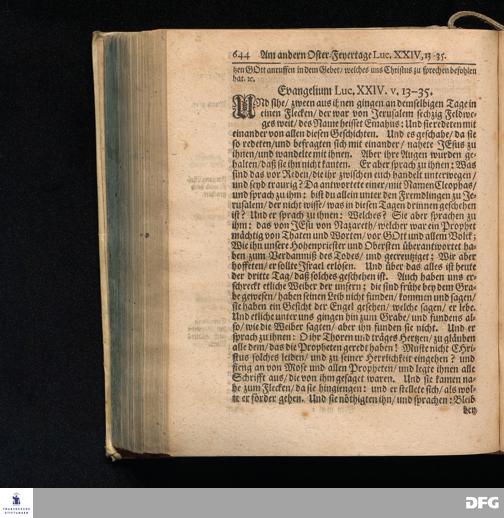 644 Am andern Oster-Feyertage Luc. XXIV, 13-35.
tzen GOtt anruffen in dem Gebet/ welches uns Christus zu sprechen befohlen
hat. ꝛc.
Evangelium Luc, XXIV. v. 13-35.
UNd sihe/ zween aus ihnen gingen an demselbigen Tage in
einen Flecken/ der war von Jerusalem sechzig Feldwe-
ges weit/ des Name heisset Emahus: Und sie redeten mit
einander von allen diesen Geschichten. Und es geschahe/ da sie
so redeten/ und befragten sich mit einander/ nahete JEsus zu
ihnen/ und wandelte mit ihnen. Aber ihre Augen wurden ge-
halten/ daß sie ihn nicht kanten. Er aber sprach zu ihnen: Was
sind das vor Reden/ die ihr zwischen euch handelt unterwegen/
und seyd traurig? Da antwortete einer/ mit Namen Cleophas/
und sprach zu ihm: bist du allein unter den Fremdlingen zu Je-
rusalem/ der nicht wisse/ was in diesen Tagen drinnen geschehen
ist? Und er sprach zu ihnen: Welches? Sie aber sprachen zu
ihm: das von JEsu von Nazareth/ welcher war ein Prophet
mächtig von Thaten und Worten/ vor GOtt und allem Volck;
Wie ihn unsere Hohenpriester und Obersten überantwortet ha-
ben zum Verdamniß des Todes/ und gecreutziget; Wir aber
hoffeten/ er solte Israel erlösen. Und über das alles ist heute
der dritte Tag/ daß solches geschehen ist. Auch haben uns er-
schreckt etliche Weiber der unsern; die sind frühe bey dem Gra-
be gewesen/ haben seinen Leib nicht funden/ kommen und sagen/
sie haben ein Gesicht der Engel gesehen/ welche sagen/ er lebe.
Und etliche unter uns gingen hin zum Grabe/ und fundens al-
so/ wie die Weiber sagten/ aber ihn funden sie nicht. Und er
sprach zu ihnen: O ihr Thoren und träges Hertzen/ zu gläuben
alle dem/ das die Propheten geredt haben! Muste nicht CHri-
stus solches leiden/ und zu seiner Herrlichkeit eingehen? und
fieng an von Mose und allen Propheten/ und legte ihnen alle
Schrifft aus/ die von ihm gesaget waren. Und sie kamen na-
he zum Flecken/ da sie hingiengen: und er stellete sich/ als wol-
te er förder gehen. Und sie nöthigten ihn/ und sprachen: Bleib
bey
FRANCKESCHE
STIFTUNGEN
DFG